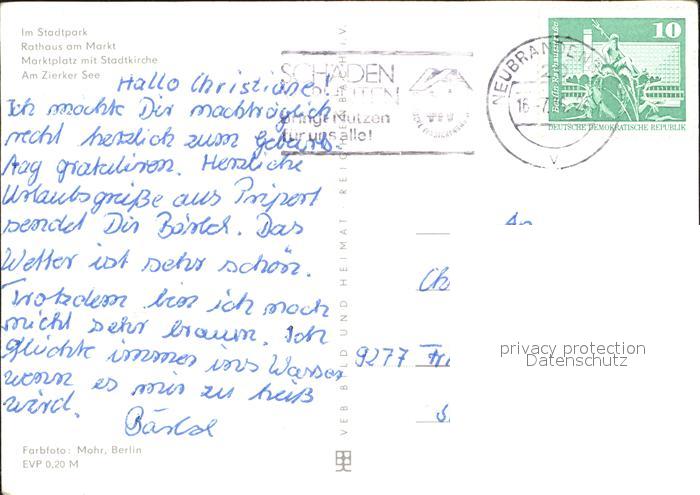 Im Stadtpark
Rathaus am Markt
Marktplatz mit Stadtkirche
Am Zierker See
Hallo Christiane!
Ich möchte Dir nachträglich
recht herzlich zum Geburts-
tag gratulieren. Herzliche
Urlaubsgrüße aus Pripert
sendet Dir Bärbel. Das
Wetter ist sehr schön.
Trotzdem bin ich noch
nicht sehr braun. Ich
flüchte immer ins Wasser
wenn es mir zu heiß
wird.
Bärbel
Farbfoto: Mohr, Berlin
EVP 0,20 M
VEB BILD UND HEIMAT · REICHENBACH I. V.
SCHÄDEN
bringt Nutzen
für uns alle!
NEUBRANDENB
16-7
10
Berlin, Rathausstraße
DEUTSCHE DEMOKRATISCHE REPUBLIK
An
Ch
9277
privacy protection
Datenschutz